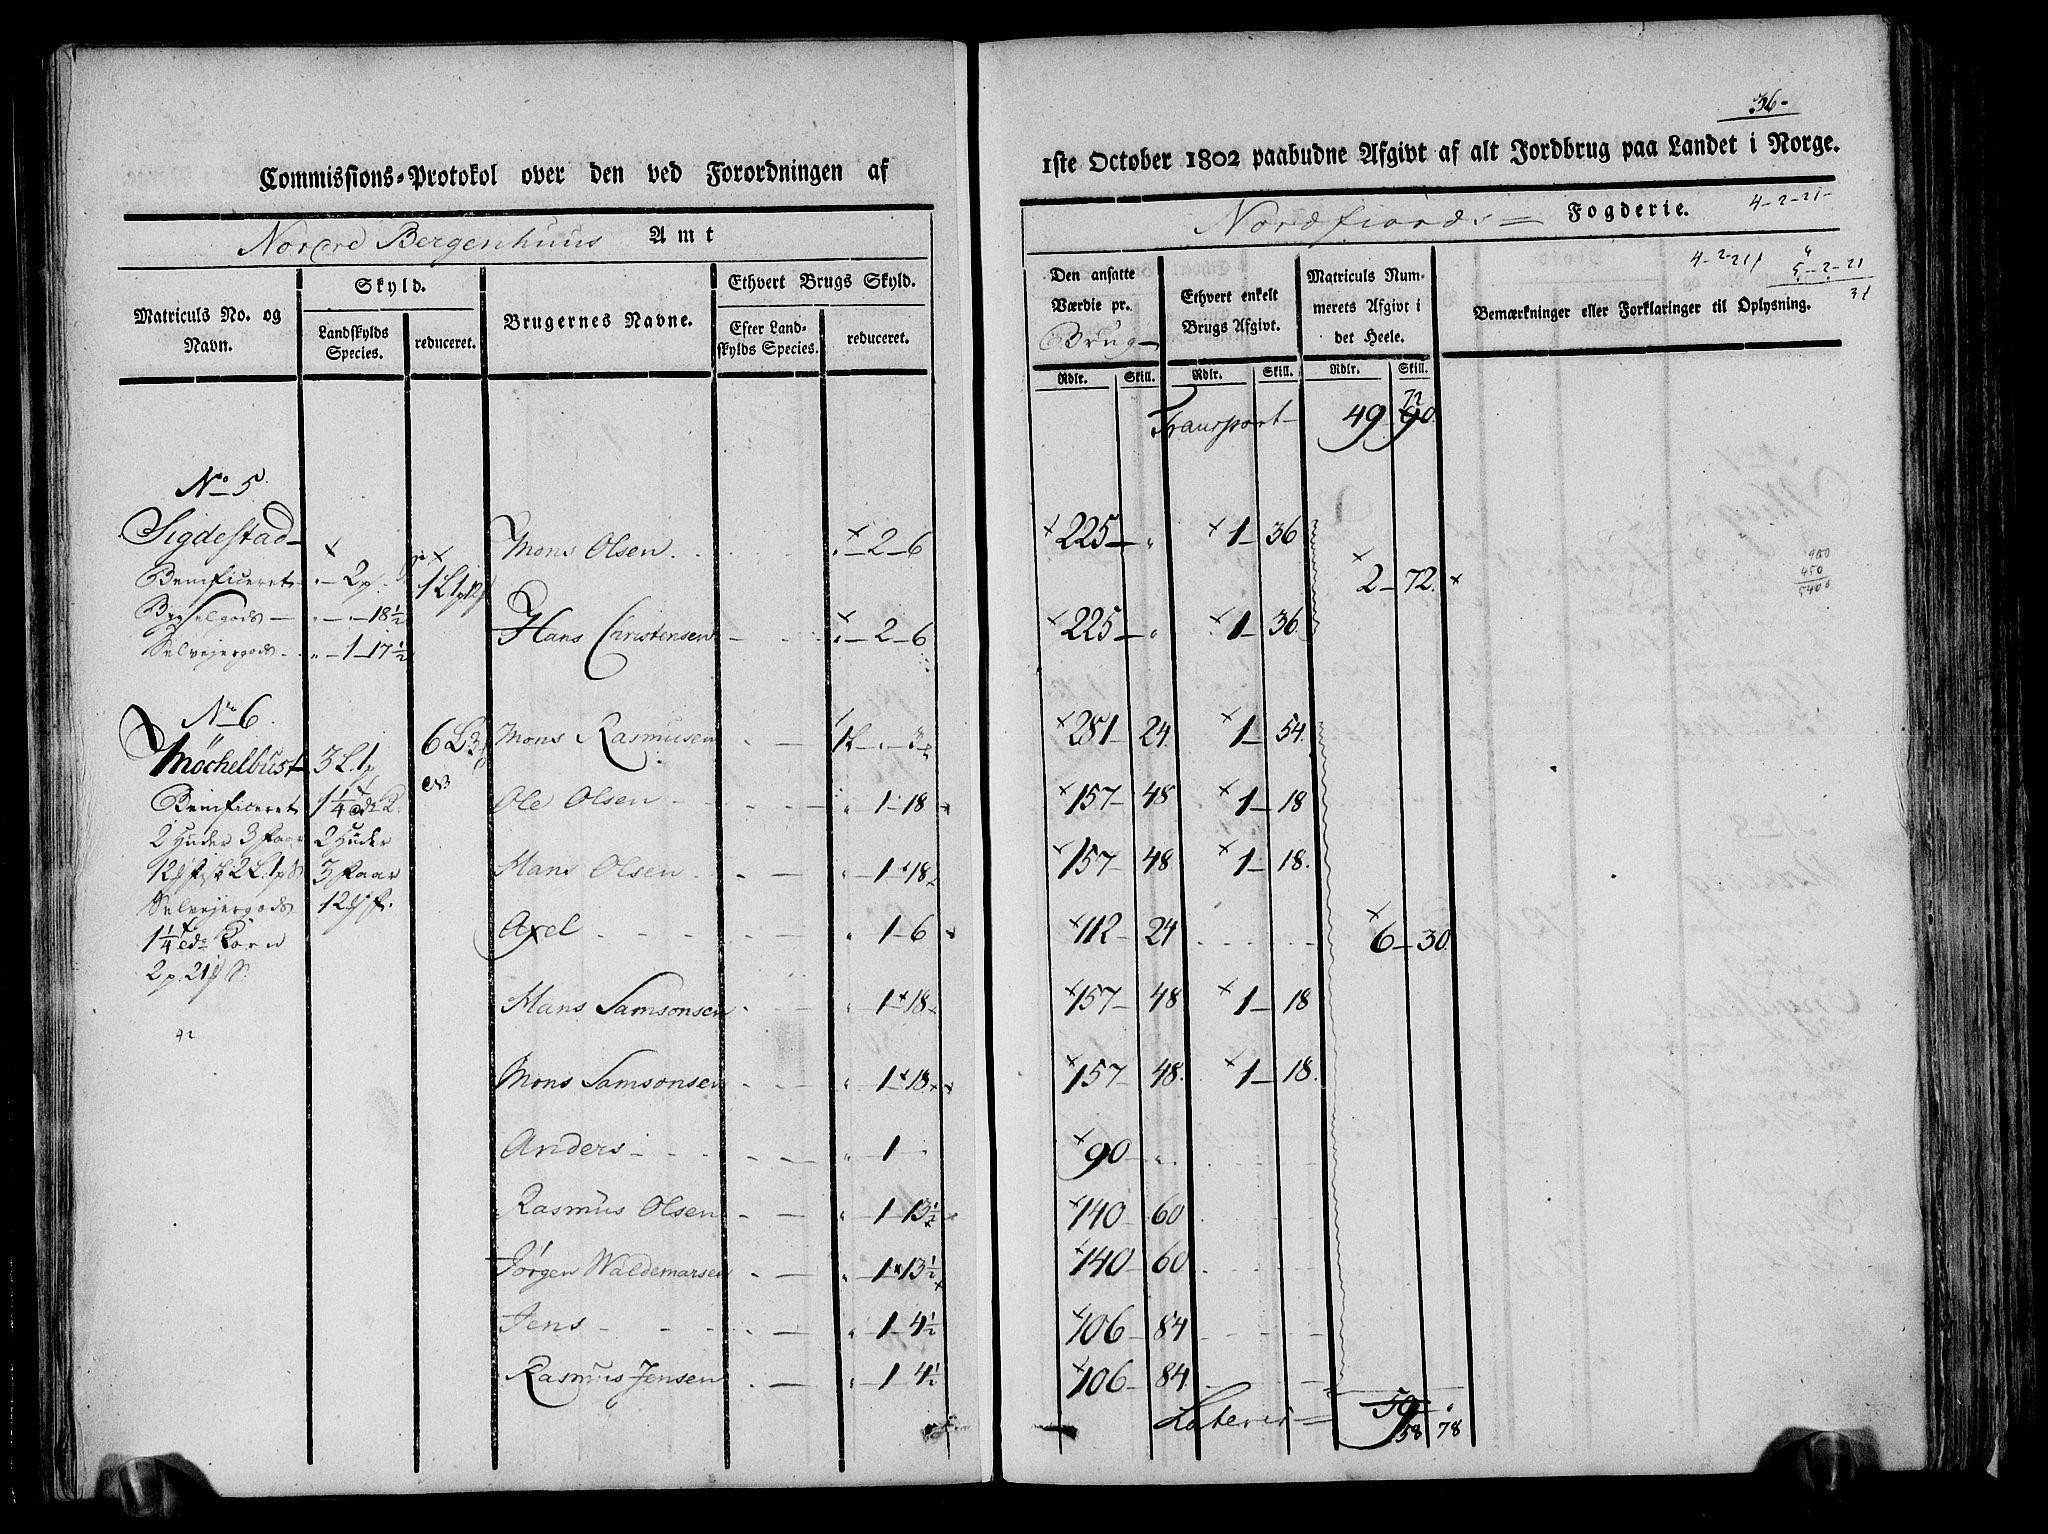 Commissions-Protokol over den ved Forordningen af
Nordre Bergenhuus Amt
Matriculs No. og Navn.
Skyld.
Landskylds Species.
reduceret.
Brugernes Navne.
Ethvert Brugs Skyld.
Efter Landskylds Species.
reduceret.
No 5
Sigdestad
Benificeret - " - 2 p.
Bygselgods - " - " - 18 1/2
Selveiergods - " - 1 - 17 1/2
Mons Olsen " - 2 - 6
Hans Christensen " - 2 - 6
No 6
Möchelbust 3 L. 1 p
Benificeret
2 Huder 3 Faar
Selveiergods
1 1/4 Td. Korn
2 Huder
3 Faar
6 L 3
Mons Rasmusen
Ole Olsen " 1 - 18
Hans Olsen " 1 - 18
Axel " 1 - 6
Hans Samsonsen " 1 - 18
Mons Samsonsen " 1 - 18
Anders " 1 -
Rasmus Olsen " 1 - 13 1/2
Jørgen Waldemarsen " 1 - 13 1/2
Jens " 1 - 4 1/2
Rasmus Jensen " 1 4 1/2
36-
1ste October 1802 paabudne Afgivt af alt Jordbrug paa Landet i Norge.
Nordfiords Fogderie. 4-2-21-
4-2-21
5-2-21
31
Den ansatte Værdie pr.
Brug
Ethvert enkelt Brugs Afgivt.
Matriculs Nummerets Afgivt i det Heele.
Bemærkninger eller Forklaringer til Oplysning.
Rdlr. Skill. Rdlr. Skill. Rdlr. Skill.
Transport 49 90 72
225 - " 1 - 36
2 - 72.
225 - " 1 - 36
900
450
5400
281 - 24 1 - 54
157 - 48 1 - 18
157 - 48 1 - 18.
112 - 24
6 - 30
157 - 48 1 - 18
157 - 48. 1 - 18.
90 - "
140 - 60
140 - 60
106 - 84
106 - 84
Lateris 59 "
58 78